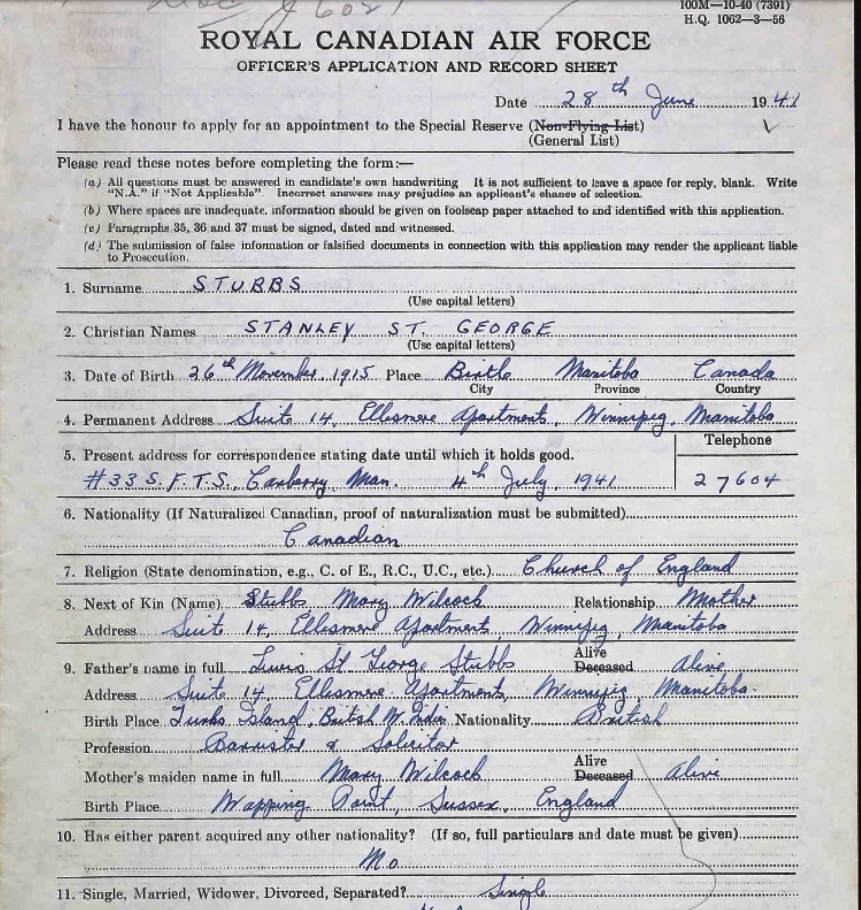 100M—10-40 (7391)
H.Q. 1062—3—56
ROYAL CANADIAN AIR FORCE
OFFICER'S APPLICATION AND RECORD SHEET
Date 28th June 1941
I have the honour to apply for an appointment to the Special Reserve (Non-Flying List)
(General List)
Please read these notes before completing the form:—
(a) All questions must be answered in candidate's own handwriting It is not sufficient to leave a space for reply, blank. Write
"N.A." if "Not Applicable". Incorrect answers may prejudice an applicant's chance of selection.
(b) Where spaces are inadequate, information should be given on foolscap paper attached to and identified with this application.
(c) Paragraphs 35, 36 and 37 must be signed, dated and witnessed.
(d) The submission of false information or falsified documents in connection with this application may render the applicant liable
to Prosecution.
1. Surname STUBBS
(Use capital letters)
2. Christian Names STANLEY ST. GEORGE
(Use capital letters)
3. Date of Birth 26th November 1915 Place Birtle Manitoba Canada
City Province Country
4. Permanent Address Suite 14, Ellesmere Apartments, Winnipeg, Manitoba
Telephone
5. Present address for correspondence stating date until which it holds good.
#33 S.F.T.S., Carberry, Man. 4th July, 1941 27604
6. Nationality (If Naturalized Canadian, proof of naturalization must be submitted)
Canadian
7. Religion (State denomination, e.g., C. of E., R.C., U.C., etc.) Church of England
8. Next of Kin (Name) Stubbs, Mary Wilcock Relationship Mother
Address Suite 14, Ellesmere Apartments, Winnipeg, Manitoba
9. Father's name in full Lewis St George Stubbs Alive Deceased Alive
Address Suite 14, Ellesmere Apartments, Winnipeg, Manitoba.
Birth Place Turks Island, British W. Indies Nationality British
Profession Barrister & Solicitor
Mother's maiden name in full Mary Wilcock Alive Deceased Alive
Birth Place Wapping Point, Sussex, England
10. Has either parent acquired any other nationality? (If so, full particulars and date must be given)
No
11. Single, Married, Widower, Divorced, Separated? Single